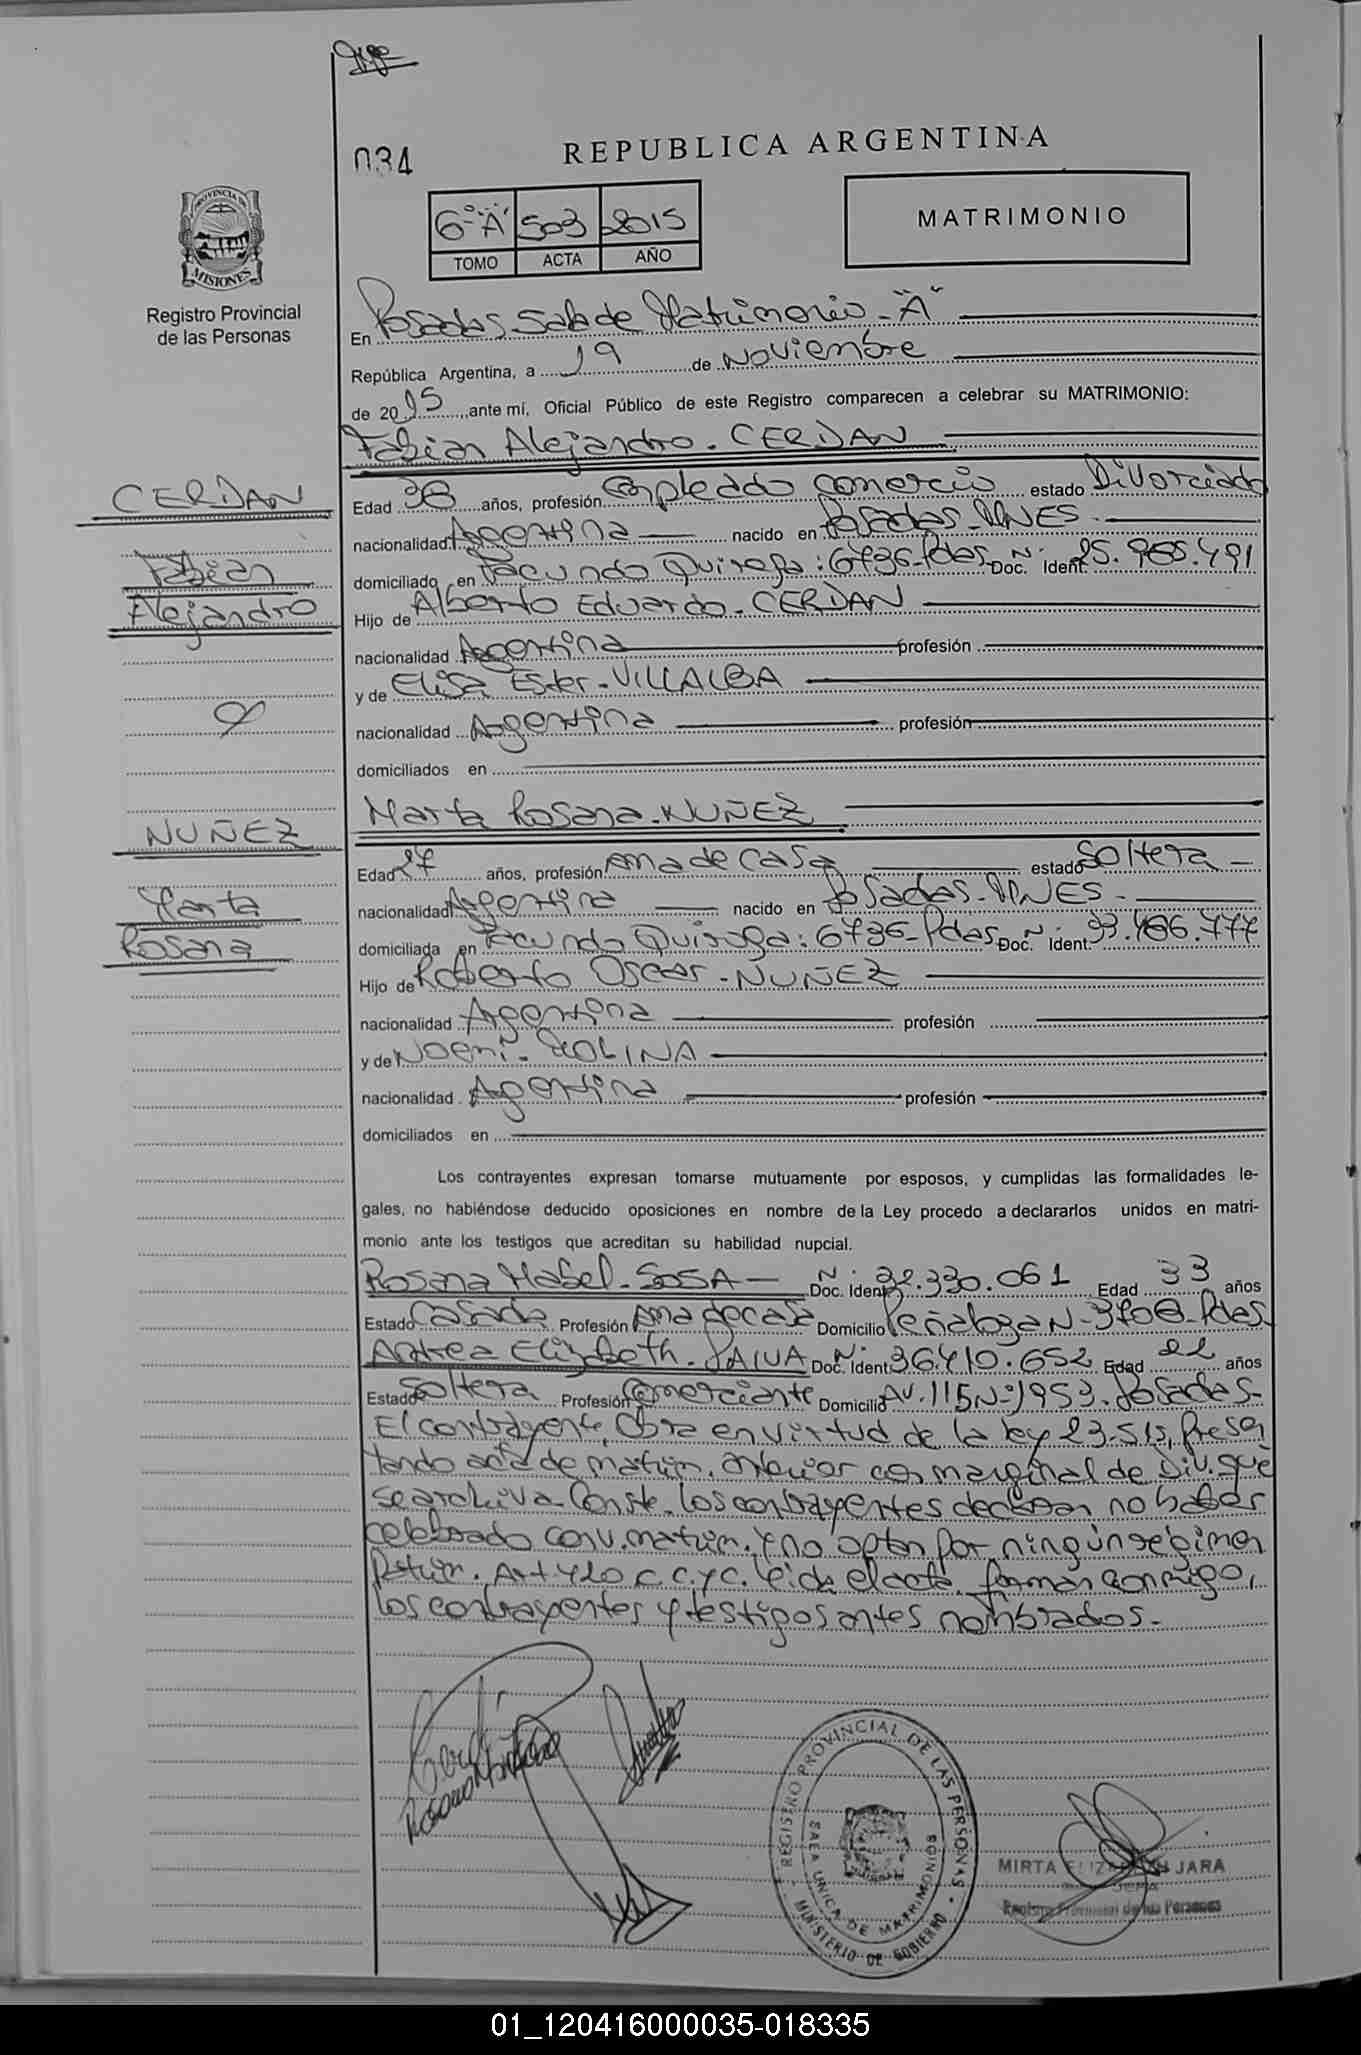 034
REPUBLICA ARGENTINA
6º "A" 503 2015
TOMO ACTA AÑO
MATRIMONIO
PROVINCIA DE
MISIONES
Registro Provincial
de las Personas
En Posadas Sala de Matrimonio - "A"
República Argentina, a 19 de Noviembre
de 2015, ante mí, Oficial Público de este Registro comparecen a celebrar su MATRIMONIO:
Fabian Alejandro - CERDAN
CERDAN
Fabian
Alejandro
Edad 38 años, profesión Empleado Comercio estado Divorciado
nacionalidad Argentina nacido en Posadas - MNES -
domiciliado en Facundo Quiroga: 6736 - Pdas - Doc. Nº Ident. 25.965.491
Hijo de Alberto Eduardo - CERDAN
nacionalidad Argentina profesión
y de Elisa Ester - VILLALBA
nacionalidad Argentina profesión
domiciliados en
Marta Rosana - NUÑEZ
NUÑEZ
Marta
Rosana
Edad 27 años, profesión Ama de casa estado Soltera -
nacionalidad Argentina nacido en Posadas - MNES -
domiciliada en Facundo Quiroga: 6736 - Pdas - Doc. Nº Ident. 33.486.777
Hijo de Roberto Oscar - NUÑEZ
nacionalidad Argentina profesión
y de Noemi - MOLINA
nacionalidad Argentina profesión
domiciliados en
Los contrayentes expresan tomarse mutuamente por esposos, y cumplidas las formalidades le-
gales, no habiéndose deducido oposiciones en nombre de la Ley procedo a declararlos unidos en matri-
monio ante los testigos que acreditan su habilidad nupcial.
Rosana Mabel - SOSA - Doc. Nº Ident. 32.330.061 Edad 33 años
Estado Casada Profesión Ama de casa Domicilio Peñaloza Nº 3708 - Pdas -
Andrea Elizabeth - PAIVA Doc. Nº Ident. 36.410.652 Edad 22 años
Estado Soltera Profesión Comerciante Domicilio Av. 115 Nº 1953 - Posadas -
El contrayente, obra en virtud de la ley 23.515, Presen
tando acta de matrim. anterior con marginal de Div. que
se archiva - Conste - Los contrayentes declaran no haber
celebrado conv. matrim. y no optan por ningún régimen
Patrim. Art 420 C.C. y C. Leída el acta, firman conmigo,
los contrayentes y testigos antes nombrados -
REGISTRO PROVINCIAL DE LAS PERSONAS
SALA UNICA DE MATRIMONIOS
MINISTERIO DE GOBIERNO
MIRTA ELIZABETH JARA
JEFA
Registro Provincial de las Personas
01_120416000035-018335